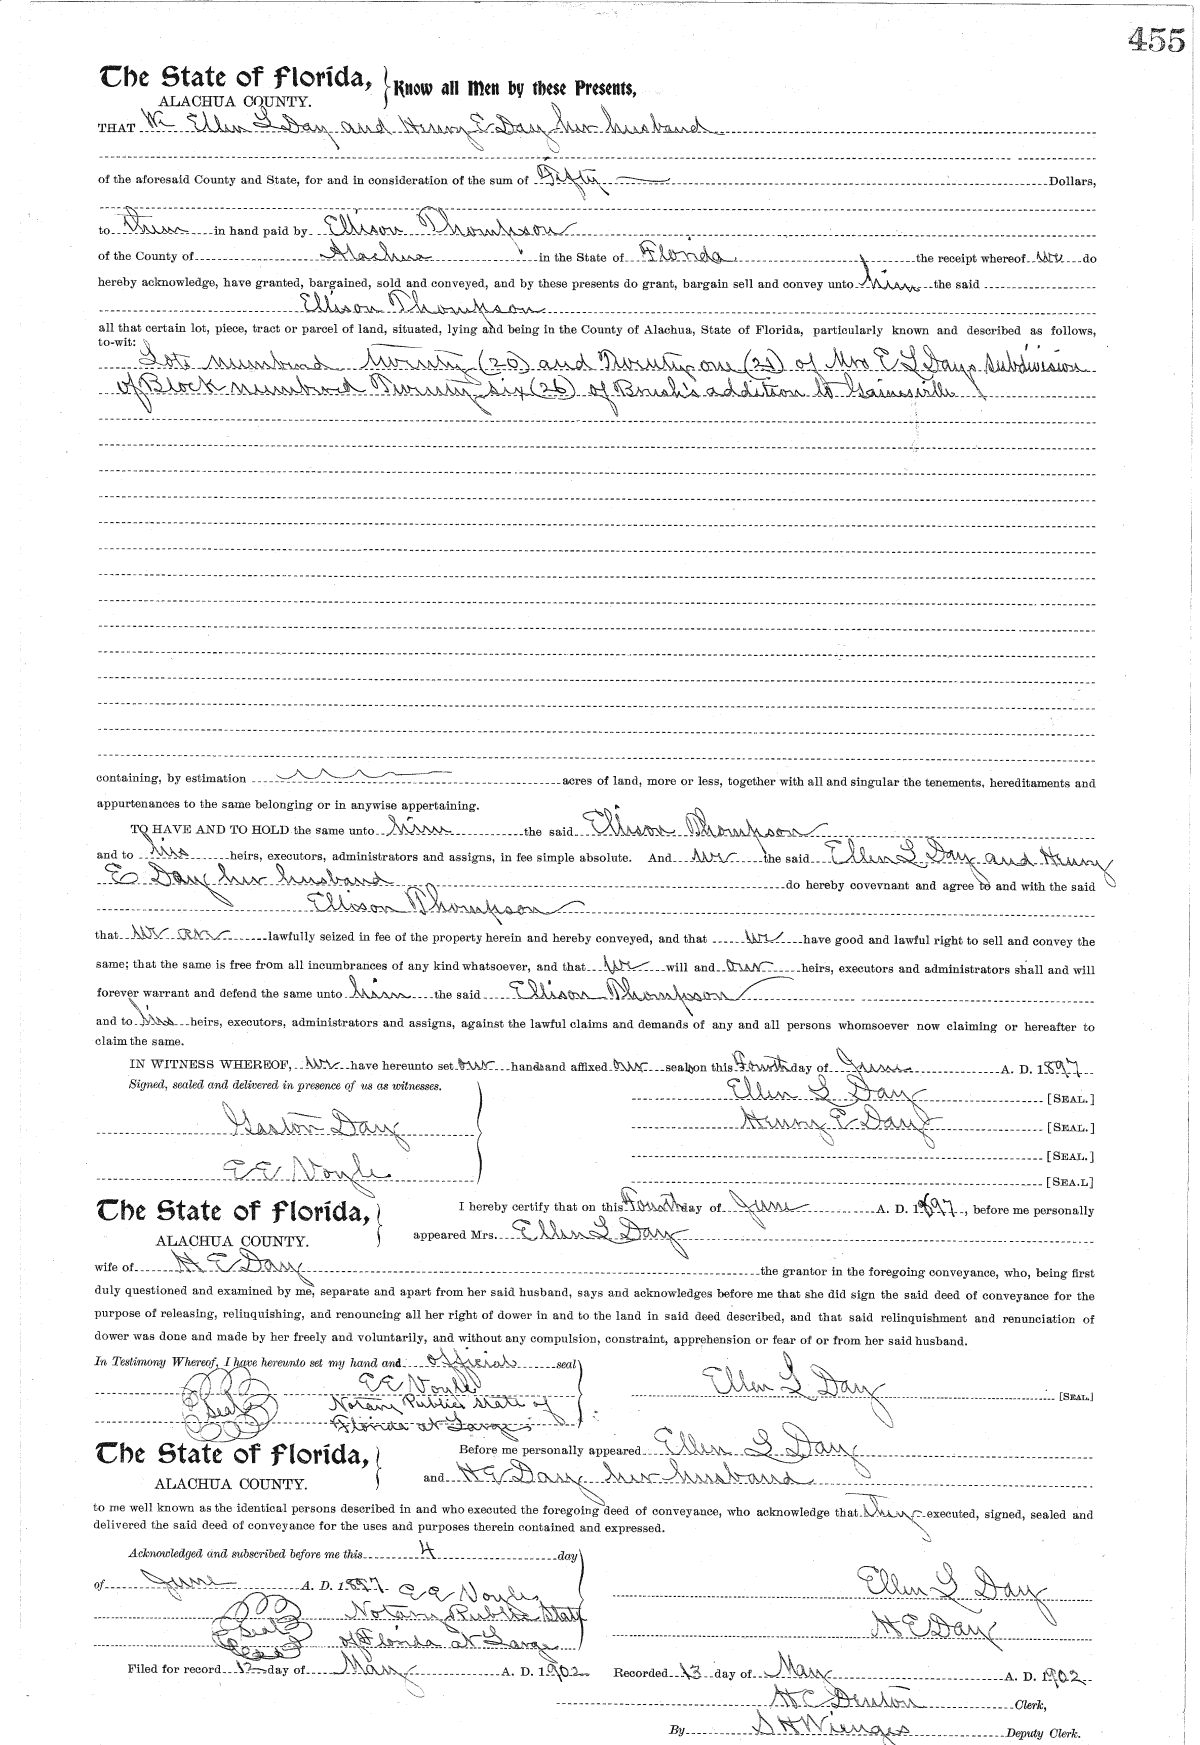 455
The State of Florida, Know all Men by these Presents,
ALACHUA COUNTY.
THAT We Ellen L Day and Henry E Day her husband
of the aforesaid County and State, for and in consideration of the sum of Fifty Dollars,
to them in hand paid by Ellison Thompson
of the County of Alachua in the State of Florida the receipt whereof we do
hereby acknowledge, have granted, bargained, sold and conveyed, and by these presents do grant, bargain sell and convey unto him the said
Ellison Thompson
all that certain lot, piece, tract or parcel of land, situated, lying and being in the County of Alachua, State of Florida, particularly known and described as follows,
to-wit:
Lots numbered Twenty (20) and Twenty one (21) of Mrs E L Days subdivision
of Block numbered Twenty six (26) of Brush's addition to Gainesville
containing, by estimation acres of land, more or less, together with all and singular the tenements, hereditaments and
appurtenances to the same belonging or in anywise appertaining.
TO HAVE AND TO HOLD the same unto him the said Ellison Thompson
and to his heirs, executors, administrators and assigns, in fee simple absolute. And we the said Ellen L Day and Henry
E Day her husband do hereby covevnant and agree to and with the said
Ellison Thompson
that we are lawfully seized in fee of the property herein and hereby conveyed, and that we have good and lawful right to sell and convey the
same; that the same is free from all incumbrances of any kind whatsoever, and that we will and our heirs, executors and administrators shall and will
forever warrant and defend the same unto him the said Ellison Thompson
and to his heirs, executors, administrators and assigns, against the lawful claims and demands of any and all persons whomsoever now claiming or hereafter to
claim the same.
IN WITNESS WHEREOF, we have hereunto set our hands and affixed our seals on this Fourth day of June A. D. 1897
Signed, sealed and delivered in presence of us as witnesses.
Ellen L Day [SEAL.]
Gaston Day Henry E Day [SEAL.]
[SEAL.]
E E Voyle [SEA.L]
The State of Florida, I hereby certify that on this Fourth day of June A. D. 1897, before me personally
ALACHUA COUNTY. appeared Mrs. Ellen L Day
wife of H E Day the grantor in the foregoing conveyance, who, being first
duly questioned and examined by me, separate and apart from her said husband, says and acknowledges before me that she did sign the said deed of conveyance for the
purpose of releasing, relinquishing, and renouncing all her right of dower in and to the land in said deed described, and that said relinquishment and renunciation of
dower was done and made by her freely and voluntarily, and without any compulsion, constraint, apprehension or fear of or from her said husband.
In Testimony Whereof, I have hereunto set my hand and official seal
E E Voyle Ellen L Day [SEAL.]
Seal Notary Public State of
Florida at Large
The State of Florida, Before me personally appeared Ellen L Day
ALACHUA COUNTY. and H E Day her husband
to me well known as the identical persons described in and who executed the foregoing deed of conveyance, who acknowledge that They executed, signed, sealed and
delivered the said deed of conveyance for the uses and purposes therein contained and expressed.
Acknowledged and subscribed before me this 4 day
of June A. D. 1897. E E Voyle Ellen L Day
Seal Notary Public State H E Day
of Florida at Large
Filed for record 12 day of May A. D. 1902 Recorded 13 day of May A. D. 1902
H C Denton Clerk,
By S H Wienges Deputy Clerk.